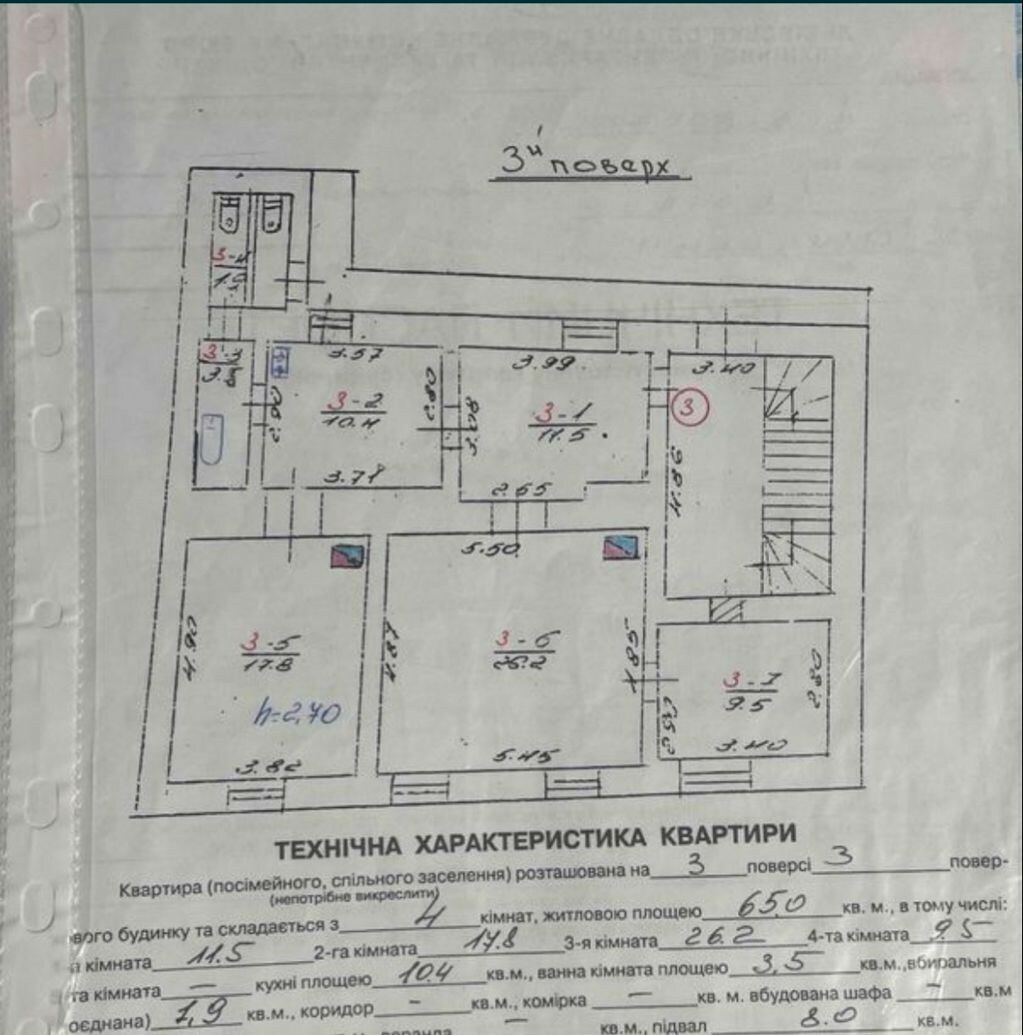 3й поверх
3-4
3-3
3.57
3.99
3.40
3-2
10.4
2.90
2.80
3.08
3-1
11.5
3
4.89
3.71
2.65
5.50
3-5
17.8
4.81
3-6
26.2
4.85
3-7
9.5
2.80
h=2,70
3.82
5.45
3.40
ТЕХНІЧНА ХАРАКТЕРИСТИКА КВАРТИРИ
Квартира (посімейного, спільного заселення) розташована на 3 поверсі 3 повер-
(непотрібне викреслити)
вого будинку та складається з 4 кімнат, житловою площею 65,0 кв. м., в тому числі:
а кімната 11.5 2-га кімната 17.8 3-я кімната 26.2 4-та кімната 9.5
та кімната — кухні площею 10.4 кв.м., ванна кімната площею 3,5 кв.м.,вбиральня
оєднана) 1,9 кв.м., коридор - кв.м., комірка — кв. м. вбудована шафа - кв.м
веранда — кв.м., підвал 8.0 кв.м.